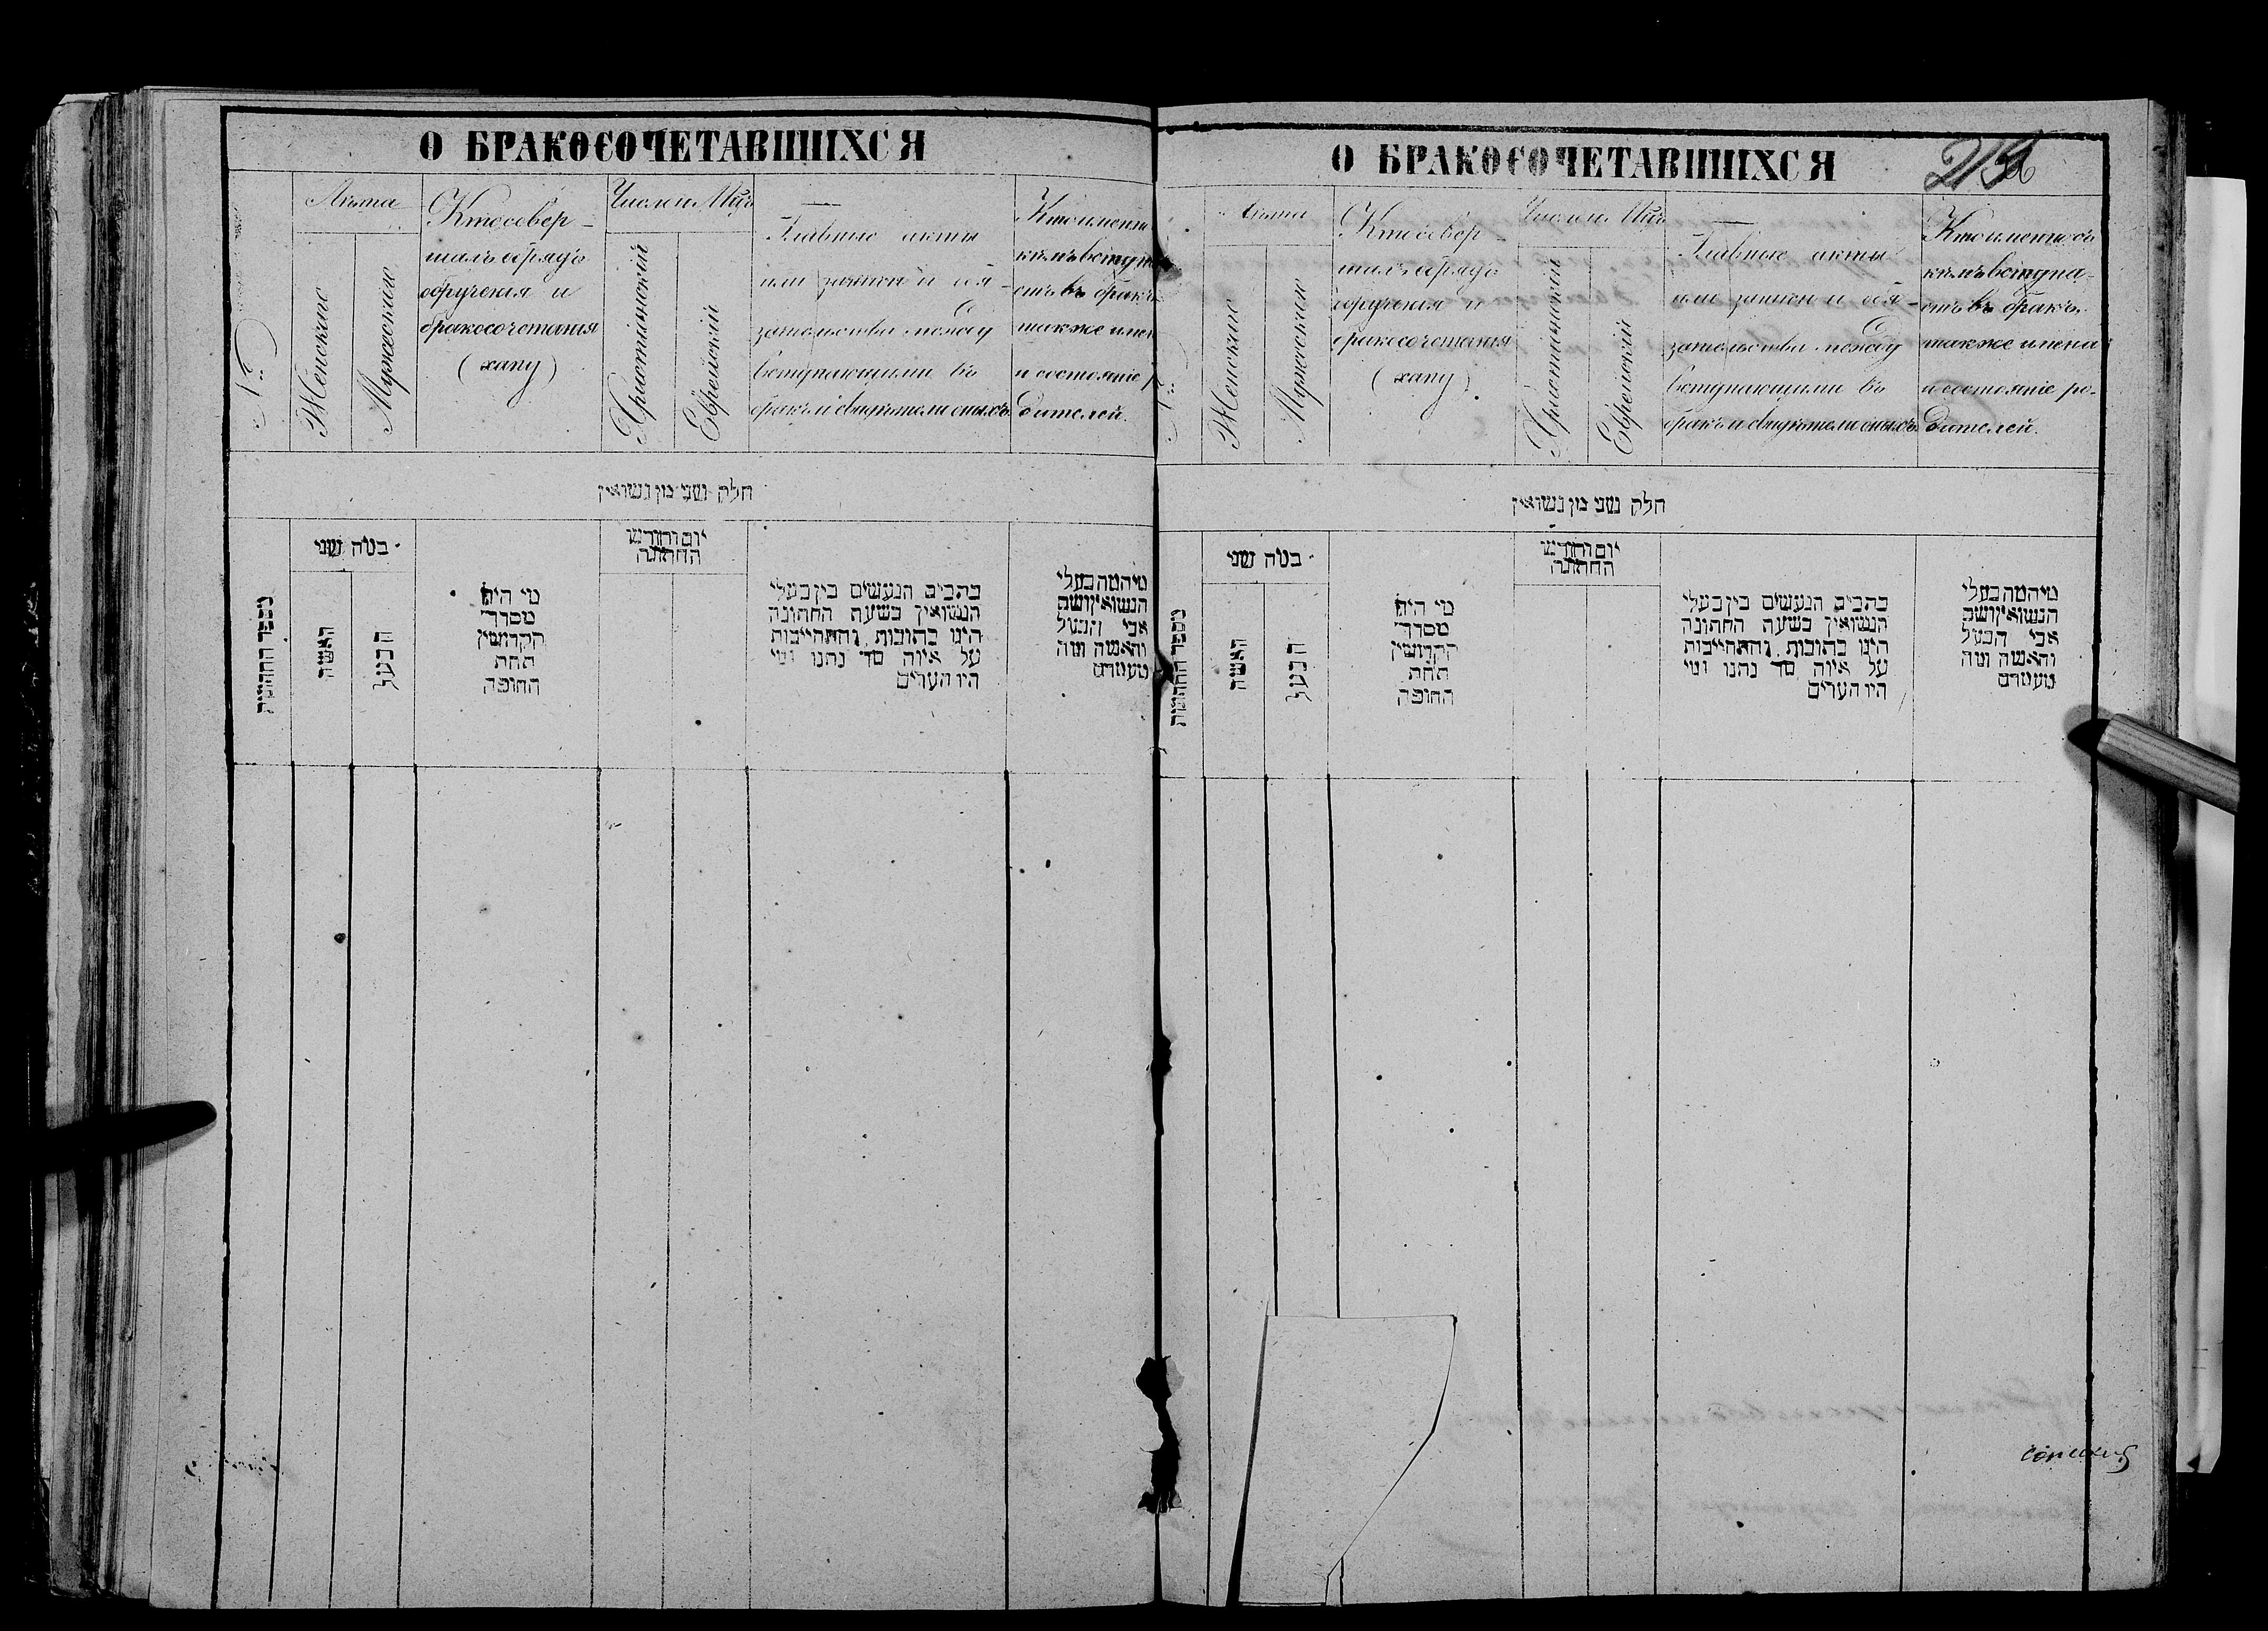 О БРАКОСОЧЕТАВШИХСЯ
№
Лѣта
Женскаго
Мужескаго
Кто совер-
шалъ обрядъ
обрученія и
бракосочетанія
(хапу)
Число и Мцъ
Христіанскій
Еврейскій
Главные акты
или записи и обя-
зательства между
вступающими въ
бракъ и свидѣтели оныхъ
Кто именно
кѣмъ вступа
етъ въ бракъ
также имен
и состояніе р
дителей.
חלק שני מן נשואין
מספר החתונות
בט״ה שני
האשה
הבעל
מי היה
מסדר
הקדושין
תחת
החופה
יום וחודש
החתונה
כתבים הנעשים בין בעלי
הנשואין בשעת החתונה
היינו כתובות והתחייבות
על איזה סך נתנו ומי
היו העדים
מיהמה בעלי
הנשואין ושם
אבי הבעל
והאשה ומה
מעמדם
О БРАКОСОЧЕТАВШИХСЯ
№
Лѣта
Женскаго
Мужескаго
Кто совер-
шалъ обрядъ
обрученія и
бракосочетанія
(хапу)
Число и Мцъ
Христіанскій
Еврейскій
Главные акты
или записи и обя-
зательства между
вступающими въ
бракъ и свидѣтели оныхъ
Кто именно съ
кѣмъ вступа-
етъ въ бракъ,
также имена
и состояніе ро-
дителей.
חלק שני מן נשואין
מספר החתונות
בט״ה שני
האשה
הבעל
מי היה
מסדר
הקדושין
תחת
החופה
יום וחודש
החתונה
כתבים הנעשים בין בעלי
הנשואין בשעת החתונה
היינו כתובות והתחייבות
על איזה סך נתנו ומי
היו העדים
מיהמה בעלי
הנשואין ושם
אבי הבעל
והאשה ומה
מעמדם